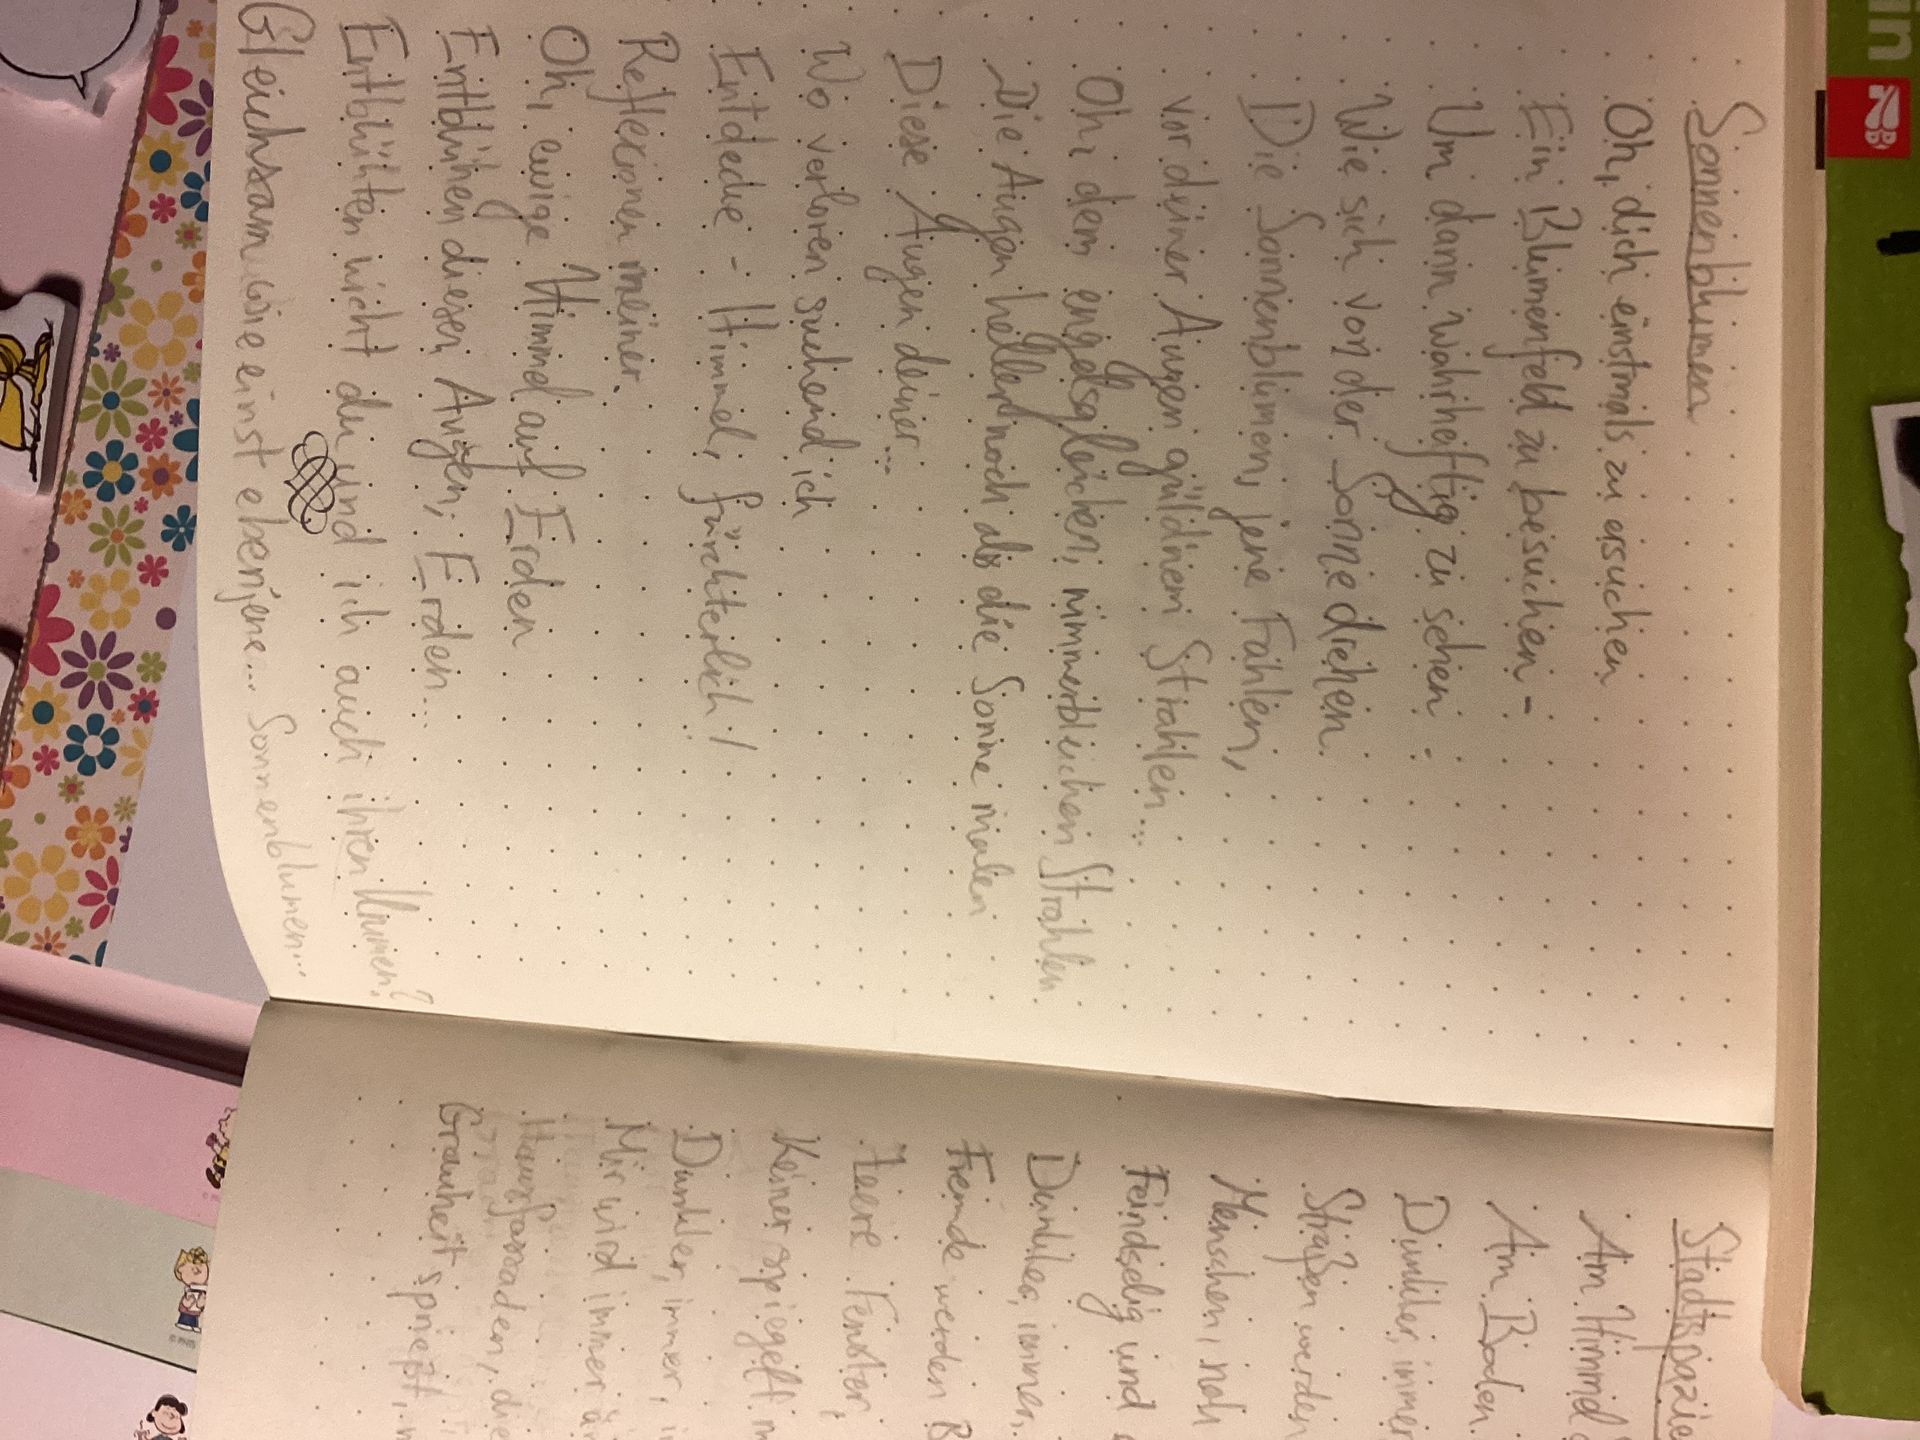 Sonnenblumen
Oh, dich einstmals zu ersuchen
Ein Blumenfeld zu besuchen -
Um dann wahrheftig zu sehen -
Wie sich von der Sonne drehen
Die Sonnenblumen, jene Fahlen,
vor deiner Augen güldnem Strahlen...
Oh, dem engelsgleichen, nimmerbleichen Strahlen.
Die Augen heller noch als die Sonne malen
Diese Augen deiner...
Wo verloren suchend ich
Entdecke - Himmel, fürchterlich!
Reflexionen meiner.
Oh, ewige Himmel auf Erden
Entblühen diesen Augen, Erden...
Entblühten nicht du und ich auch ihren
Gleichsam wie einst ebenjene... Sonnenblumen...
Stadtspazie
Am Himmel
Am Boden
Dunkler, immer
Straßen werden
Menschen, nah
Feindselig und
Dunkler, immer,
Fremde werden B
leere Fenster,
Keiner spiegelt m
Dunkler, immer, i
Mir wird immer är
Hausfassaden, die
Grauheit sprießt, n
in